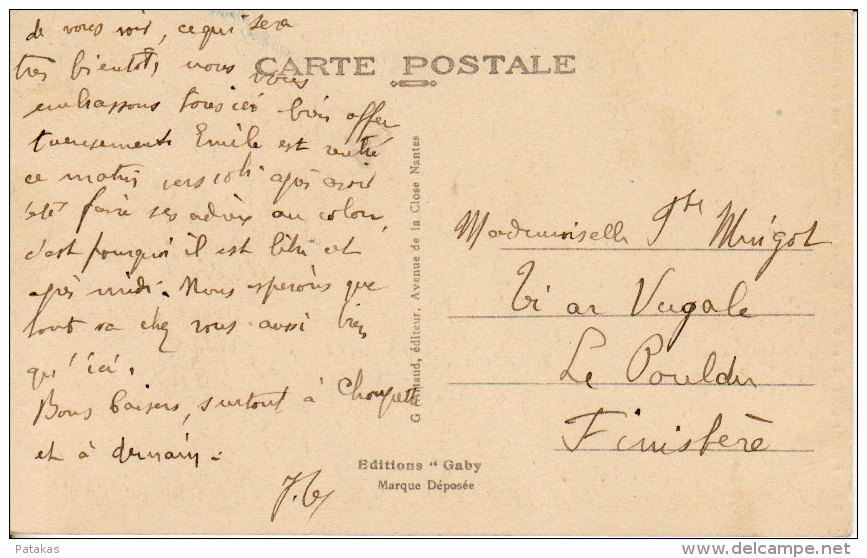 de vous voir, ce qui sera
très bientôt, nous vous
embrassons tous ici bien affec
tueusement. Emile est rentré
ce matin vers 10h après avoir
été faire ses adieux au colon,
c'est pourquoi il est libre cet
après midi. Nous espérons que
tout va chez vous aussi bien
qu'ici.
Bons baisers, surtout à
et à demain.
CARTE POSTALE
G. Artaud, éditeur, Avenue de la Close Nantes
Mademoiselle
Ti ar Vugale
Le Pouldu
Finistère
Editions "Gaby
Marque Déposée
Patakas
www.delcampe.net